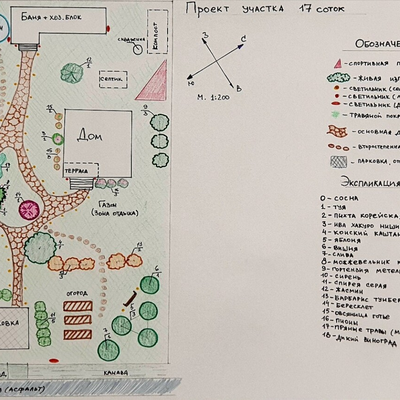 Проект участка 17 соток
Баня + хоз. блок
Компост
скважина
септик
З
С
Ю
В
М. 1:200
Дом
терраса
Газон
(зона отдыха)
огород
канава
(асфальт)
Обозначе
- спортивная п
- живая изг
- светильник (се
- светильник (
- светильник (Д
- травяной пок
- основная д
- второстепенна
- парковка, от
Экспликация
0 - сосна
1 - туя
2 - пихта корейска
3 - ива хакуро ниши
4 - конский каштан
5 - яблоня
6 - вишня
7 - слива
8 - можжевельник к
9 - гортензия метел
10 - сирень
11 - спирея серая
12 - жасмин
13 - барбарис тунбер
14 - бересклет
15 - овсяница голу
16 - пионы
17 - пряные травы (м
18 - дикий виноград